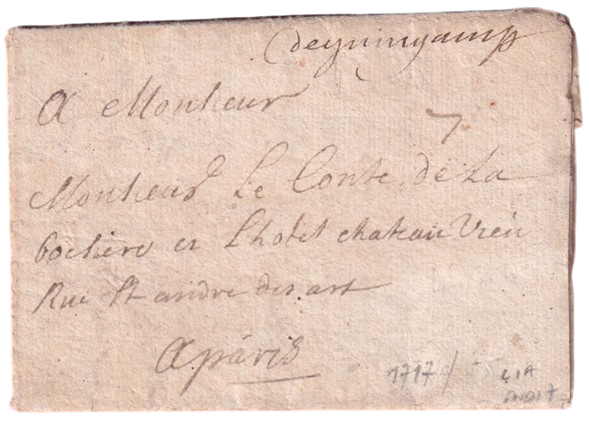 deguingamp
7
A Monsieur
Monsieur Le Conte de La
bochere en Lhotel chateau Vieu
Rue St andre des art
A paris
1717